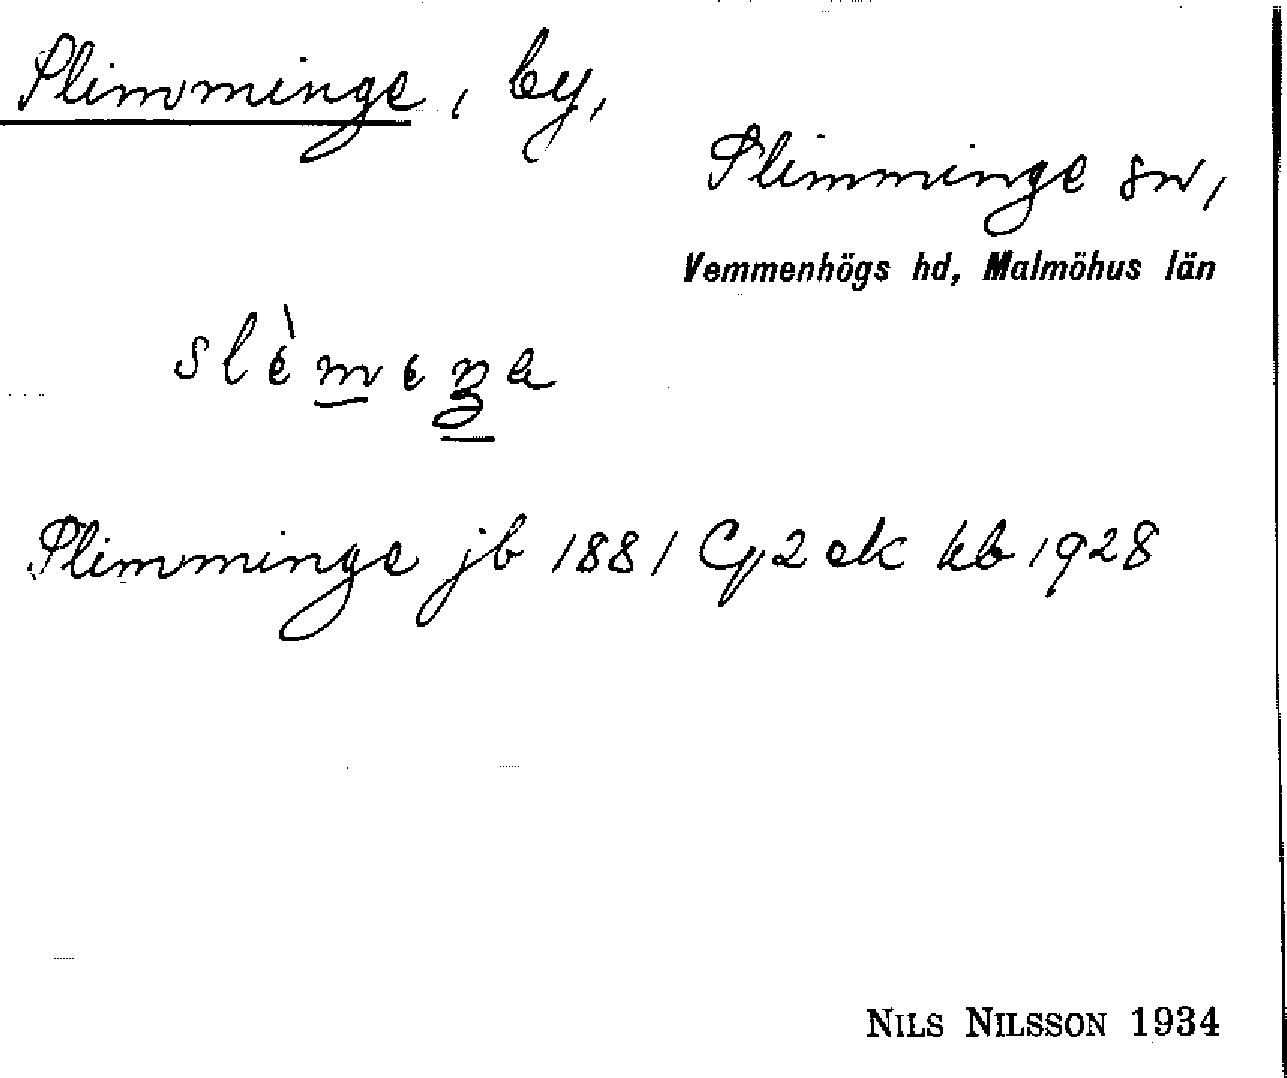 Slimminge, by,
Slimminge sn,
Vemmenhögs hd, Malmöhus län
Slimminge jb 1881 ek kb 1928
NILS NILSSON 1934